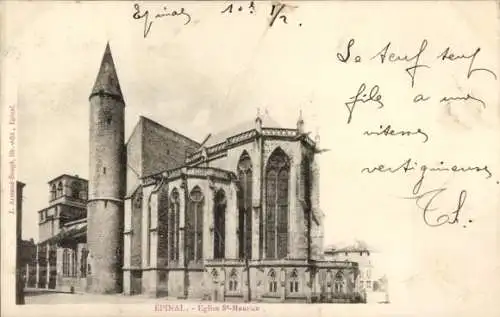 Epinal 10h 1/2
Le Teuf teuf
file à une
vitesse
vertigineuse
J. Armand-Baugé, lib.-édit., Epinal.
ÉPINAL. - Eglise St-Maurice